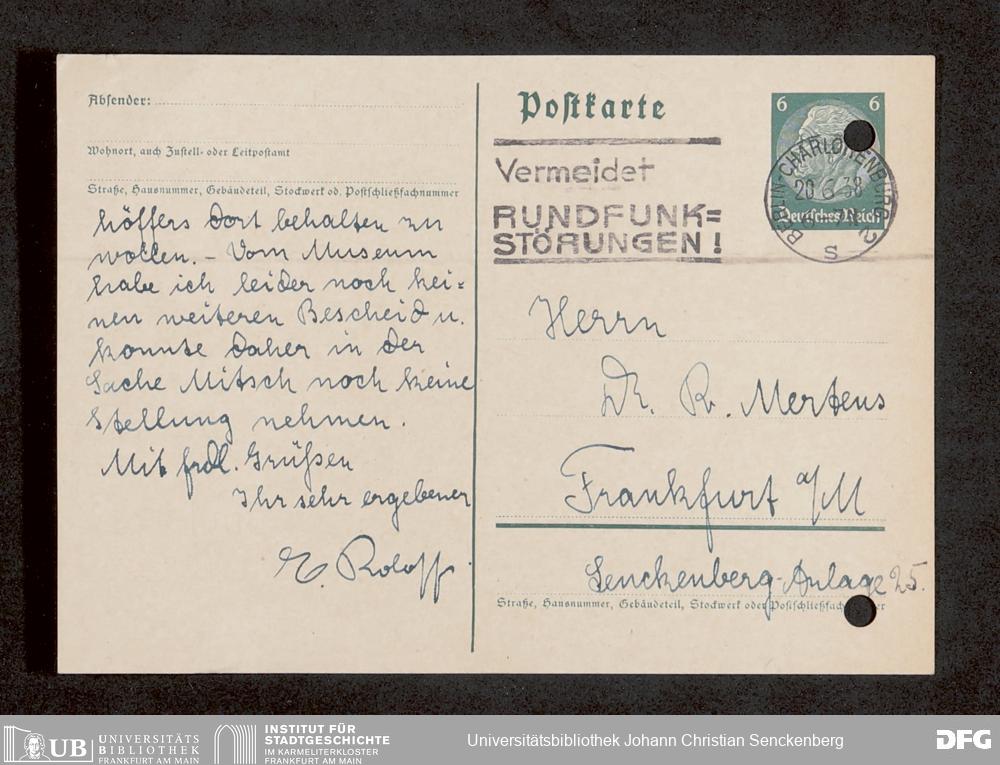 Absender:
Wohnort, auch Zustell- oder Leitpostamt
Straße, Hausnummer, Gebäudeteil, Stockwerk od. Postschließfachnummer
höffers dort behalten zu
wollen. – Vom Museum
habe ich leider noch kei=
nen weiteren Bescheid u.
konnte daher in der
Sache Mitsch noch keine
Stellung nehmen.
Mit frdl. Grüßen
Ihr sehr ergebener
E. Roloff.
Postkarte
Vermeidet
RUNDFUNK=
STÖRUNGEN!
6 6
Deutsches Reich
BERLIN-CHARLOTTENBURG 2
20.6.38
S
Herrn
Dr. R. Mertens
Frankfurt a/M
Senckenberg-Anlage 25.
Straße, Hausnummer, Gebäudeteil, Stockwerk oder Postschließfachnummer
UB UNIVERSITÄTS
BIBLIOTHEK
FRANKFURT AM MAIN
INSTITUT FÜR
STADTGESCHICHTE
IM KARMELITERKLOSTER
FRANKFURT AM MAIN
Universitätsbibliothek Johann Christian Senckenberg
DFG